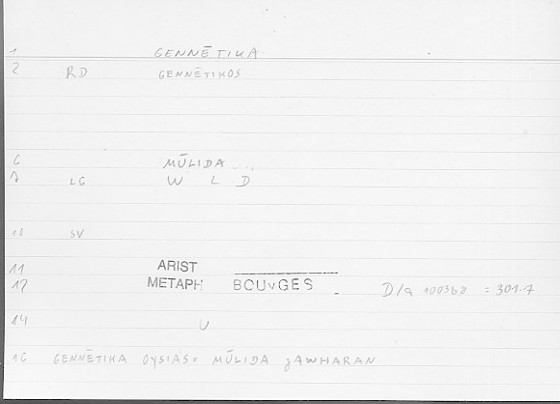 1 GENNĒTIKA
2 RD GENNĒTIKOS
6 MŪLIDA ...
7 LG W L D
10 SV
11 ARIST
12 METAPH BOUvGES - D/a 100368 = 301.7
14 U
16 GENNĒTIKA OYSIAS: MŪLIDA JAWHARAN